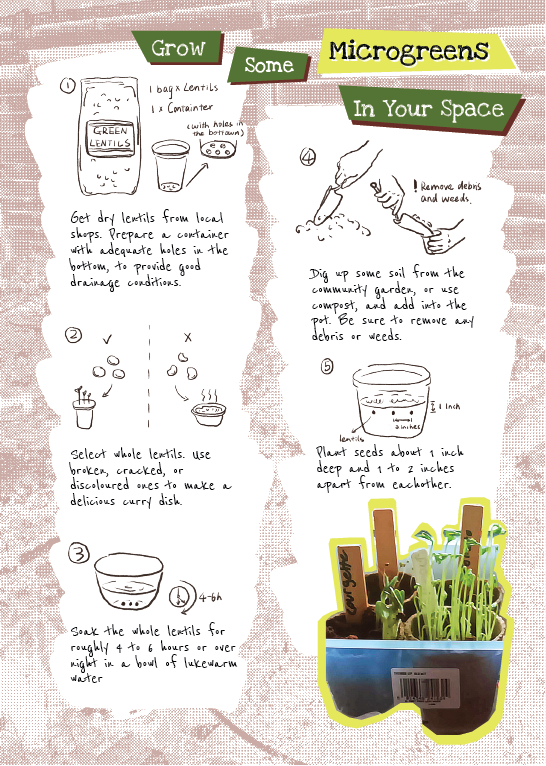 Grow
Some
Microgreens
In Your Space
1
1 bag x Lentils
1 x Containter
(with holes in
the bottown)
GREEN
LENTILS
Get dry lentils from local
shops. Prepare a container
with adequate holes in the
bottom, to provide good
drainage conditions.
2
✓
X
Select whole lentils. Use
broken, cracked, or
discoloured ones to make a
delicious curry dish.
3
4-6h
Soak the whole lentils for
roughly 4 to 6 hours or over
night in a bowl of lukewarm
water
4
! Remove debris
and weeds.
Dig up some soil from the
community garden, or use
compost, and add into the
pot. Be sure to remove any
debris or weeds.
5
1 inch
2 inches
lentils
Plant seeds about 1 inch
deep and 1 to 2 inches
apart from eachother.